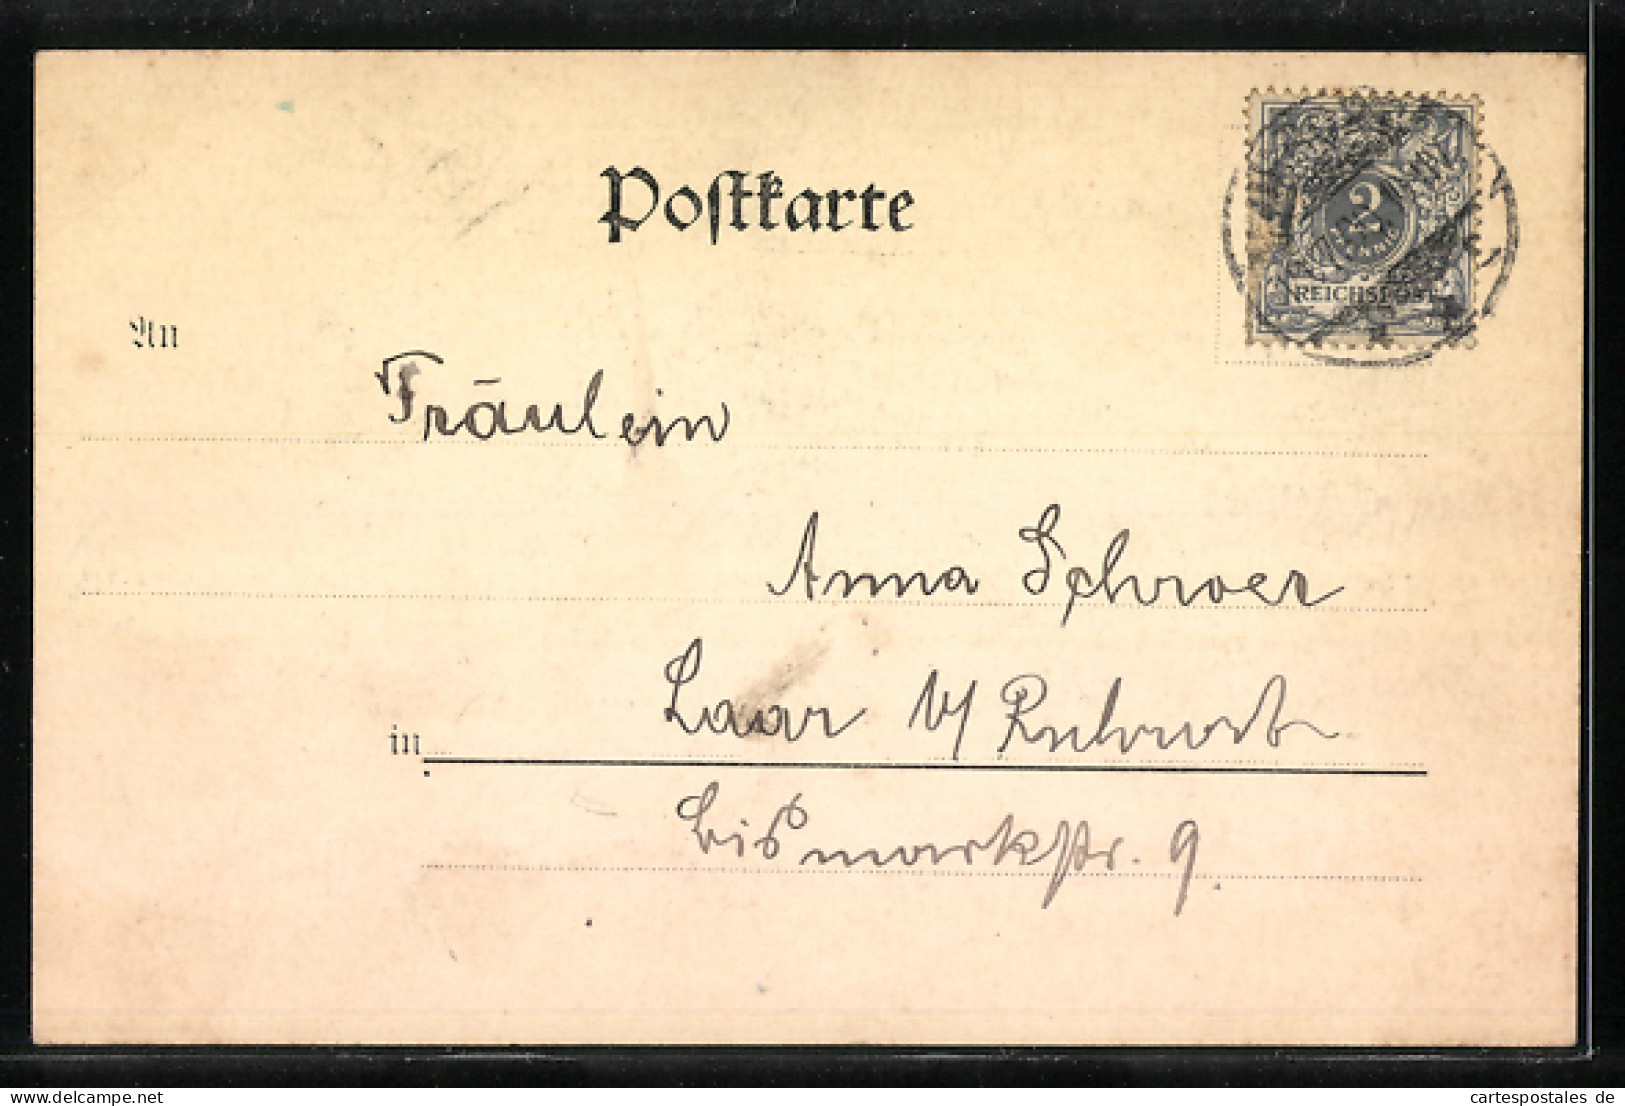 Postkarte
2
REICHSPOST
An
Fräulein
Anna Schroer
Laar b/ Ruhrort
in
Bismarkstr. 9.
www.cartespostales.de